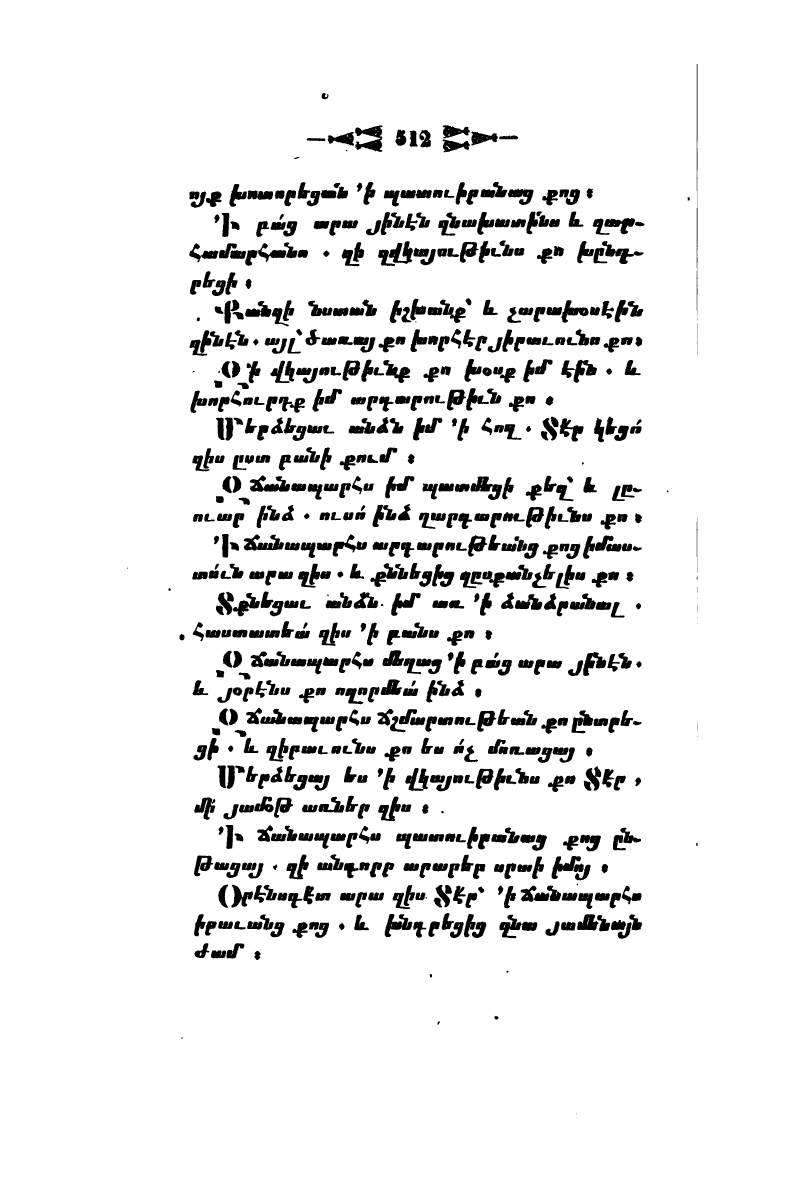 512
ոյք խոտորեցան ՚ի պատուիրանաց քոց։
՚Ի բա՛ց արա յինէն զնախատի՛նս և զար-
համարհանս . զի զվկայութիւնս քո խընդ-
րեցի։
Քանզի նստան իշխանք՝ և չարախօսէին
զինէն. այլ՝ ծառայ քո խորհէր յիրաւունս քո։
Զի վկայութիւնք քո խօսք իմ էին . և
խորհուրդք իմ արդարութիւն քո ։
Մերձեցաւ անձն իմ ՚ի հող . Տէր կեցո՛
զիս ըստ բանի քում ։
Զճանապարհս իմ պատմեցի քեզ՝ և լը-
ուար ինձ . ուսո՛ ինձ զարդարութիւնս քո ։
՚Ի ճանապարհս արդարութեանց քոց իմաս-
տուն արա զիս . և քննեցից զըսքանչելիս քո ։
Տքնեցաւ անձն իմ առ ՚ի ձանձրանալ .
հաստատեա՛ զիս ՚ի բանս քո ։
Զճանապարհս մեղաց ՚ի բա՛ց արա յինէն.
և յօրէնս քո ողորմեա՛ ինձ ։
Զճանապարհս ճշմարտութեան քո ընտրե-
ցի . և զիրաւունս քո ես ո՛չ մոռացայ ։
Մերձեցայ ես ՚ի վկայութիւնս քո Տէր ,
մի՛ յամօթ առներ զիս ։
՚Ի ճանապարհս պատուիրանաց քոց ըն-
թացայ . զի անդորր արարեր սրտի իմոյ ։
Օրէնսգէտ արա զիս Տէր՝ ՚ի ճանապարհս
իրաւանց քոց . և խնդրեցից զնա յամենայն
ժամ ։